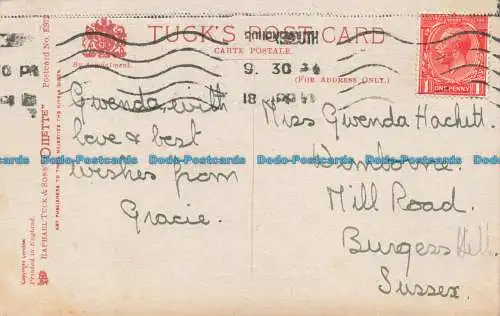 TUCK'S POST CARD
CARTE POSTALE.
By Appointment.
(FOR ADDRESS ONLY.)
9. 30
18
Postcard No.
RAPHAEL TUCK & SONS' "OILETTE"
ART PUBLISHERS TO THEIR MAJESTIES THE KING & QUEEN.
Copyright London.
Printed in England.
ONE PENNY
Gwenda, with
love & best
wishes from
Gracie.
Miss Gwenda Hackett
Wimborne.
Mill Road.
Burgess Hill.
Sussex.
Dodo-Postcards Dodo-Postcards Dodo-Postcards Dodo-Postcards